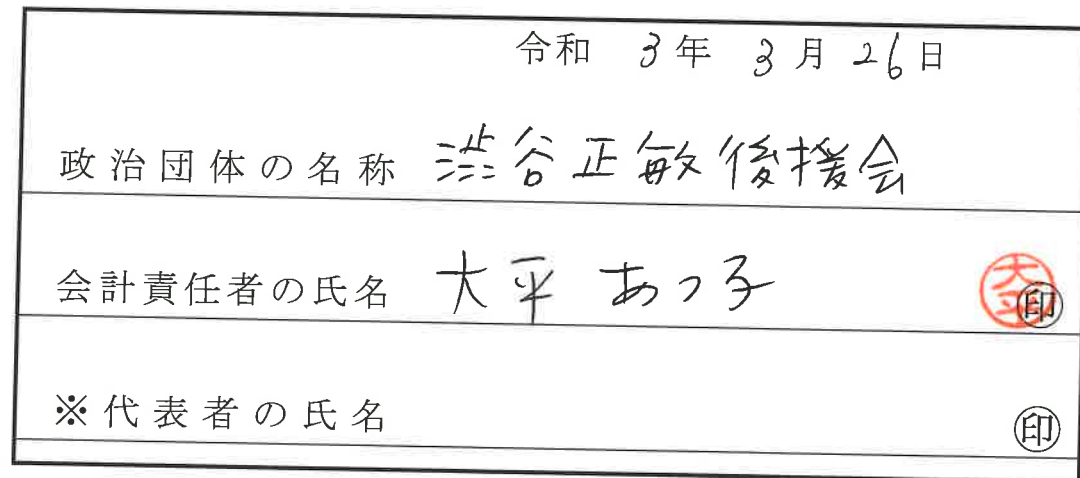 令和 3年 3月 26日
政治団体の名称 澁谷正敏後援会
会計責任者の氏名 大平 あつ子 大平 ㊞
※代表者の氏名 ㊞